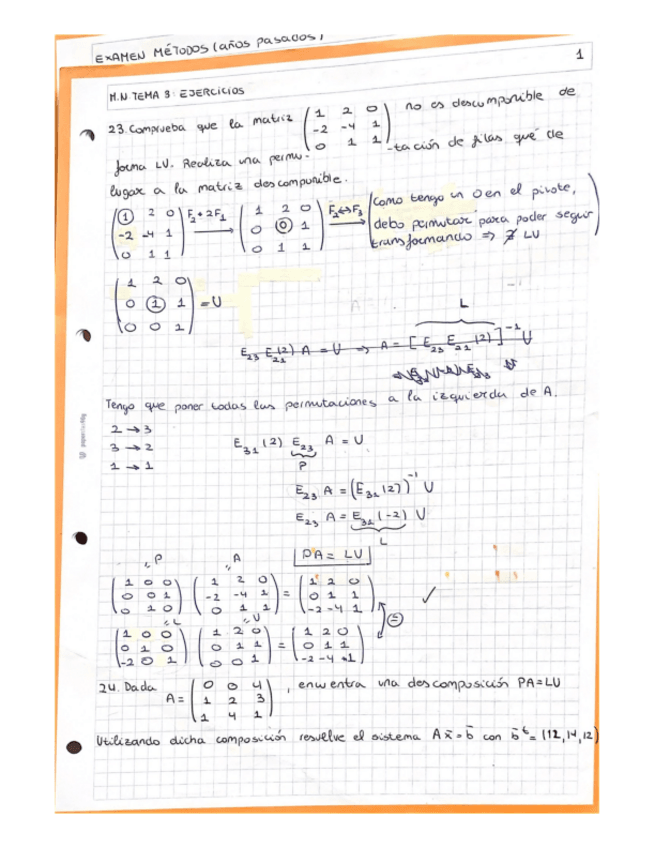 EXAMEN MÉTODOS (años pasados)
1
M.N TEMA 3: EJERCICIOS
23. Comprueba que la matriz ( 1 2 0 ; -2 -4 1 ; 0 1 1 ) no es descomponible de
forma LU. Realiza una permu- -tación de filas que dé
lugar a la matriz descomponible.
( 1 2 0 ; -2 -4 1 ; 0 1 1 ) F2+2F1 → ( 1 2 0 ; 0 0 1 ; 0 1 1 ) F2↔F3 →
(como tengo un 0 en el pivote,
debo permutar para poder seguir
transformando ⇒ ∄ LU)
( 1 2 0 ; 0 1 1 ; 0 0 1 ) = U
L
E23 E21(2) A = U → A = [ E23 E21(2) ]^-1 U
Tengo que poner todas las permutaciones a la izquierda de A.
2 → 3
3 → 2
1 → 1
E31(2) E23 A = U
P
E23 A = (E31(2))^-1 U
E23 A = E31(-2) U
L
PA = LU
"P "A
( 1 0 0 ; 0 0 1 ; 0 1 0 ) ( 1 2 0 ; -2 -4 1 ; 0 1 1 ) = ( 1 2 0 ; 0 1 1 ; -2 -4 1 ) ✓
=
"L "U
( 1 0 0 ; 0 1 0 ; -2 0 1 ) ( 1 2 0 ; 0 1 1 ; 0 0 1 ) = ( 1 2 0 ; 0 1 1 ; -2 -4 1 )
24. Dada A = ( 0 0 4 ; 1 2 3 ; 1 4 1 ), encuentra una descomposición PA=LU
Utilizando dicha composición resuelve el sistema Ax̄ = b̄ con b̄^t = (12,14,12)